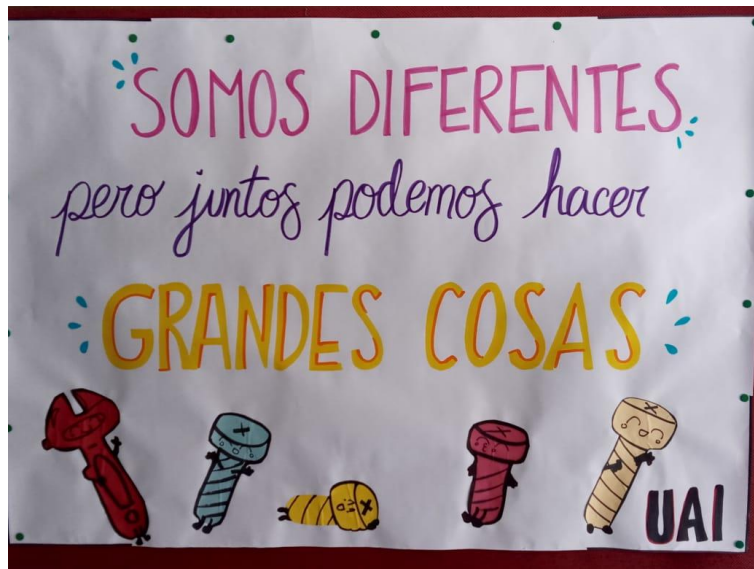 SOMOS DIFERENTES
pero juntos podemos hacer
GRANDES COSAS
UAI